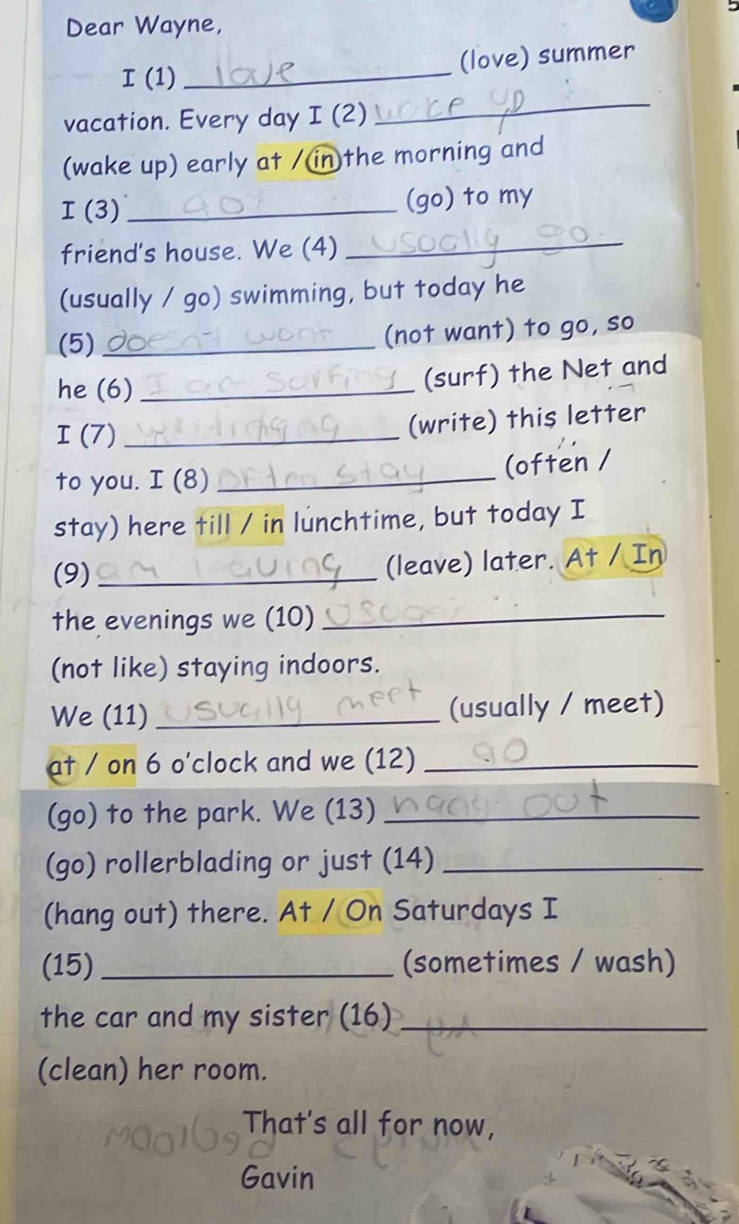 Dear Wayne,
I (1) love (love) summer
vacation. Every day I (2) wake up
(wake up) early at / in the morning and
I (3) go (go) to my
friend's house. We (4) usoclly go
(usually / go) swimming, but today he
(5) doesnt want (not want) to go, so
he (6) I am surfing (surf) the Net and
I (7) (write) this letter
to you. I (8) stay (often /
stay) here till / in lunchtime, but today I
(9) am (leave) later. At / In
the evenings we (10)
(not like) staying indoors.
We (11) usually meet (usually / meet)
at / on 6 o'clock and we (12) go
(go) to the park. We (13) out
(go) rollerblading or just (14)
(hang out) there. At / On Saturdays I
(15) (sometimes / wash)
the car and my sister (16)
(clean) her room.
That's all for now,
Gavin